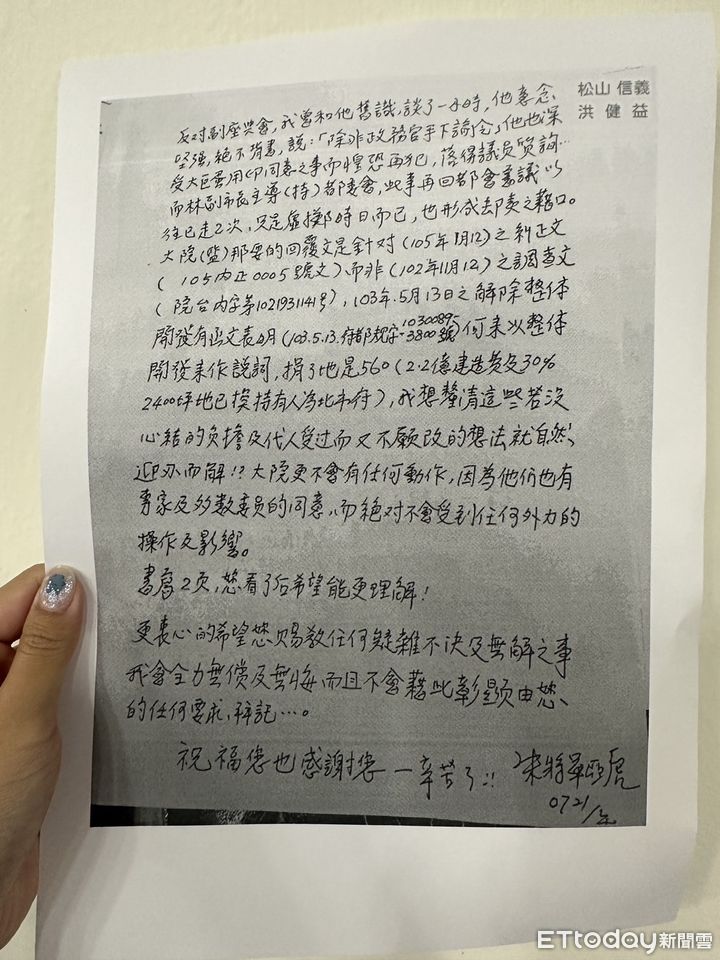 松山 信義
洪 健 益
反对副座與會,我曾和他舊識,談了一小時,他意念
坚强,絕不背書,說:「除非政務官手下諭令」他也深
受大巨蛋用印同意之事而惶恐再犯,落得議員質詢…
而林副市長主導(持)者陵會,此事再回都會審議以
往已走2次,只是虛擲時日而已,也形成去函之藉口。
大院(監)那要的回覆文是針对(105年1月12)之糾正文
(105內正0005號文)而非(102年11月12)之調查文
(院台內字第1021931141号),103年.5月13日之解除整体
開發有函文表明(103.5.13.府都規字10300895-3800號)何来以整体
開發来作說詞,捐了地是560(2.2億建造費及30%
2400坪地已 持有人為北市府),我想釐清這些若沒
心結的负擔及代人受过而又不願改的想法就自然、
迎刃而解!?大院更不會有任何動作,因為他们也有
專家及多數委員的同意,而絕对不會受到任何外力的
操作及影響。
書寫2页,您看了后希望能更理解!
更衷心的希望您賜教任何疑難不決及無解之事
我會全力無償及無悔而且不會藉此彰顯由您、
的任何要求,拜託…。
祝福您也感謝您一辛苦了!!
0721
ETtoday新聞雲